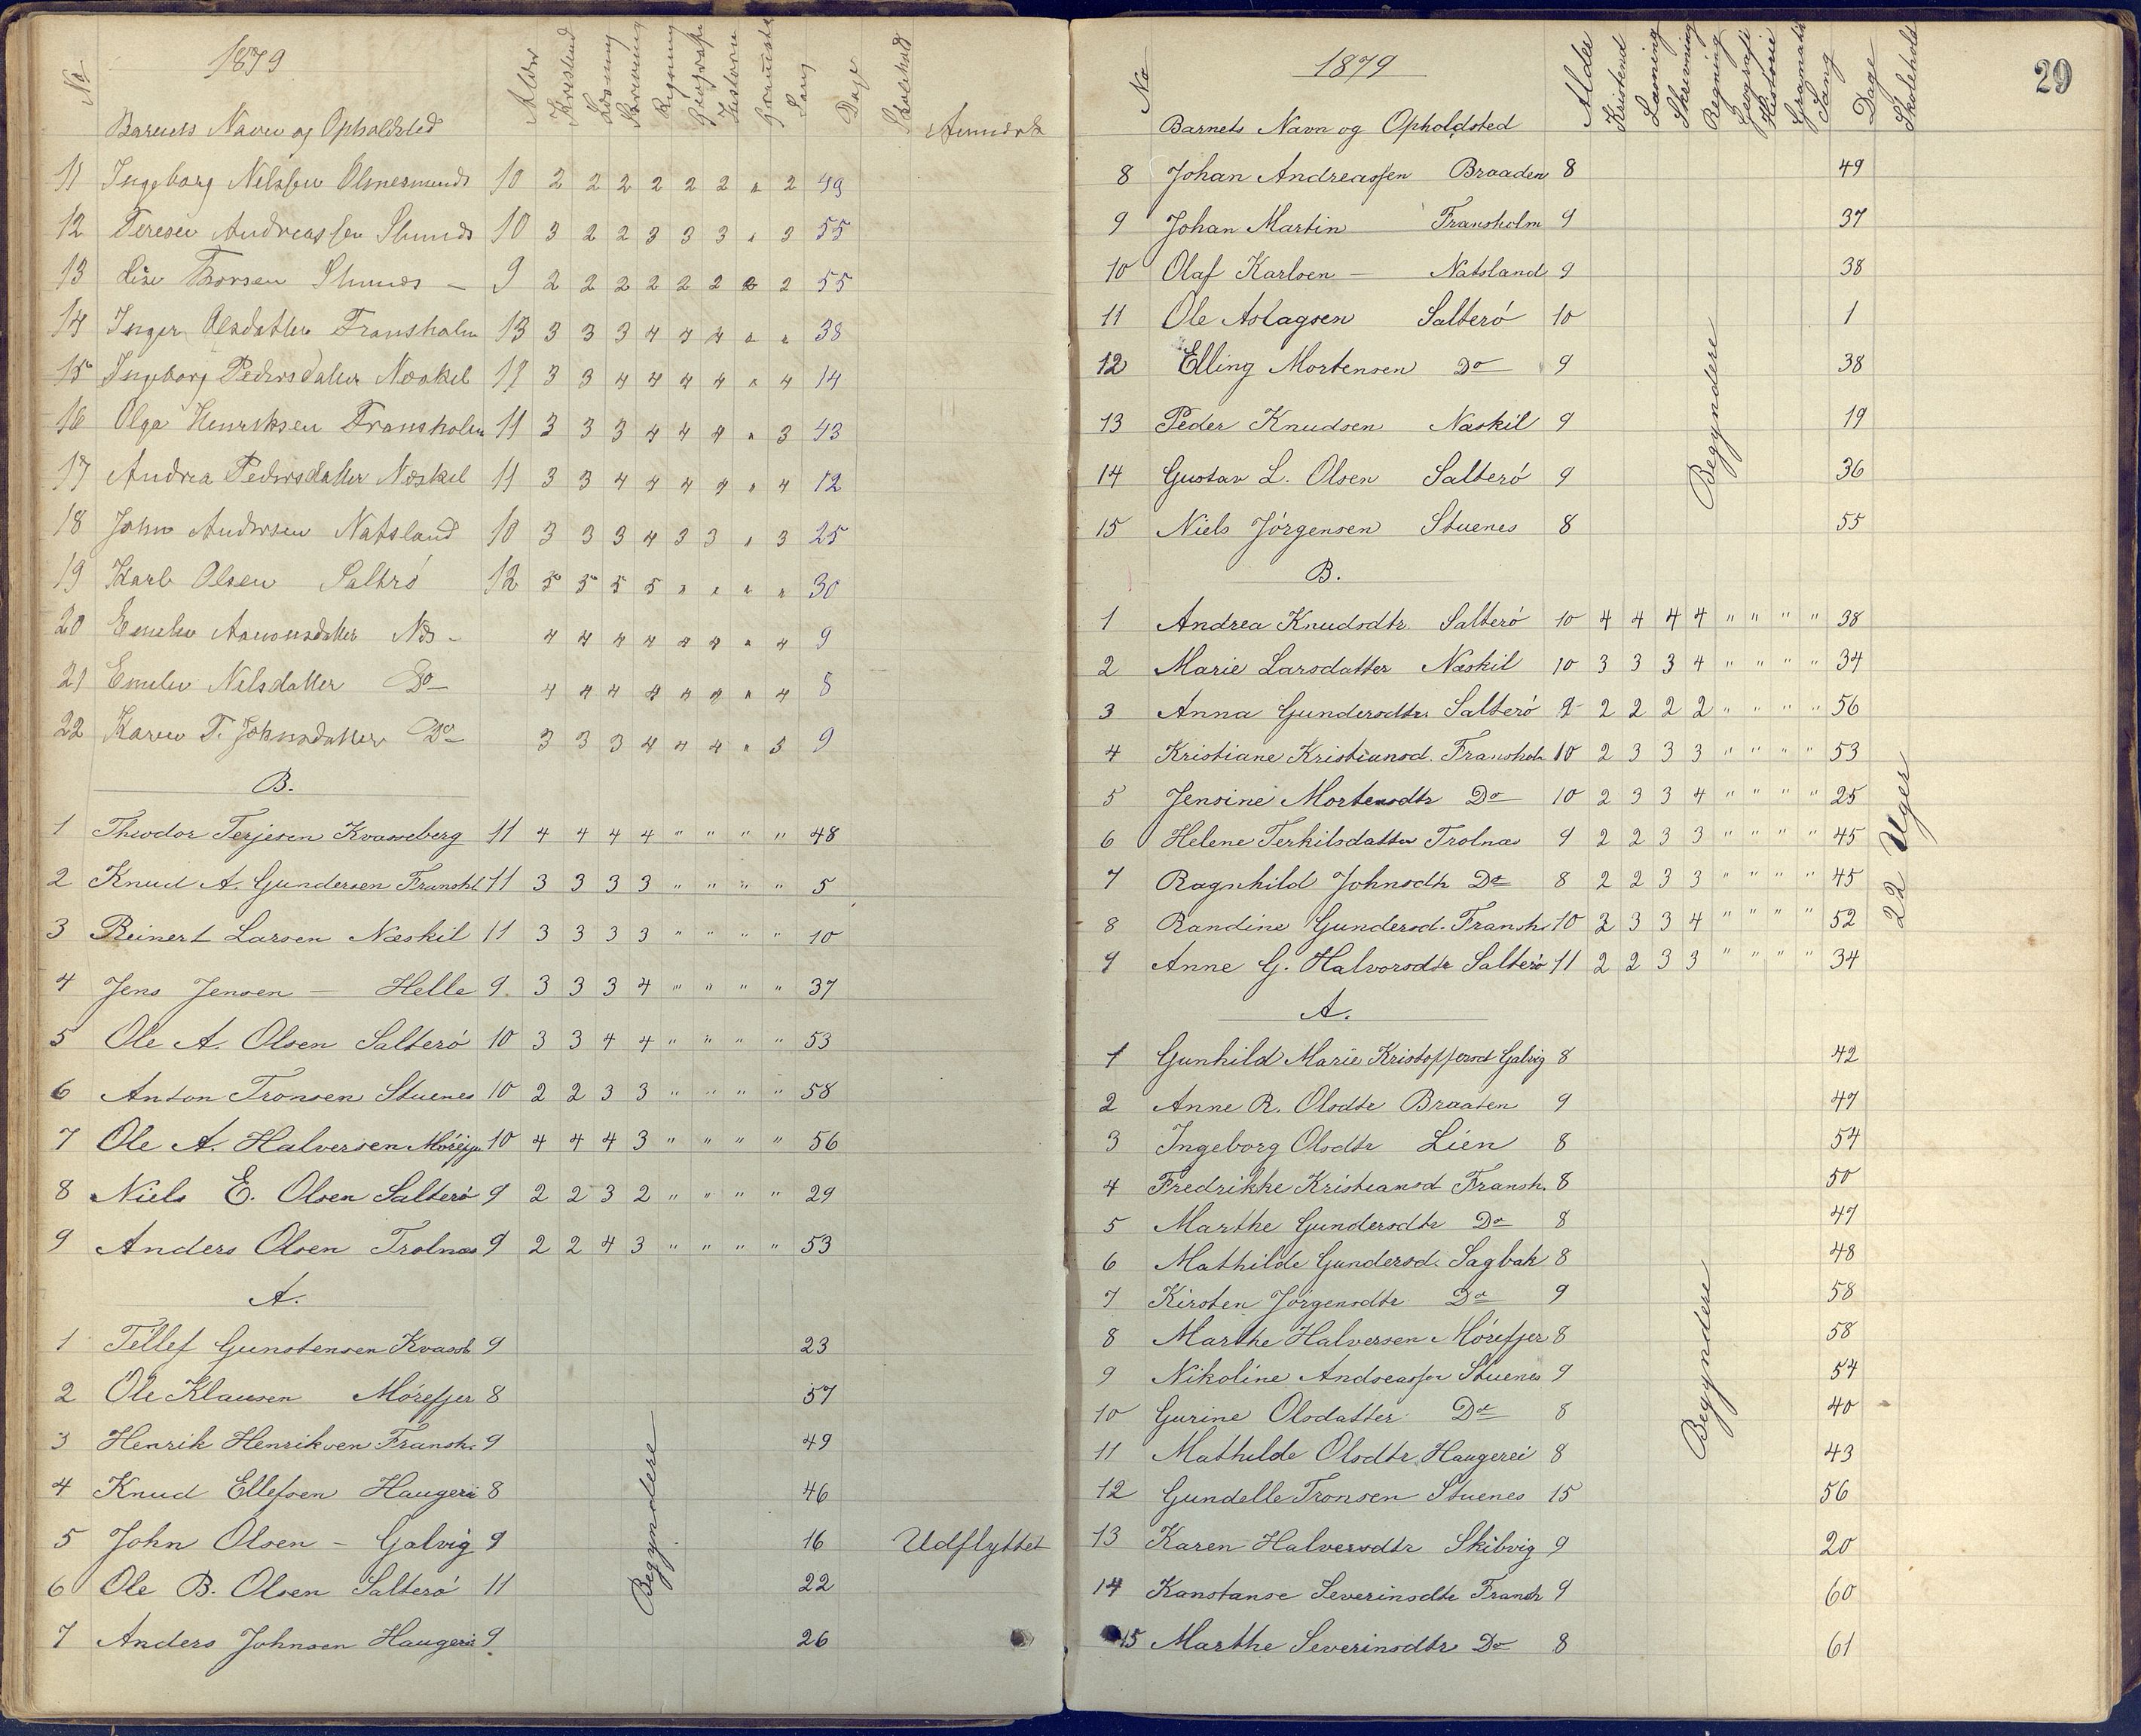 1879
No Barnets Navn og Opholdsted Alder Kristend Læsning Skrivning Regning Geografi Historie Sang Dage Skolehold Anmærk
11 Ingeborg Nilssen 10 2 2 2 2 2 2 " 2 49
12 Terese Andreassen Stunæs 10 3 2 2 3 3 3 " 3 55
13 Lise Thorsen Stunæs — 9 2 2 2 2 2 2 2 2 55
14 Inger Olsdatter Fransholm 13 3 3 3 4 4 4 " " 38
15 Ingeborg Pedersdatter Næskil 3 3 4 4 4 4 " 4 14
16 Olga Henriksen Fransholm 11 3 3 3 4 4 4 " 3 43
17 Andrea Pedersdatter Næskil 11 3 3 4 4 4 4 " 4 12
18 John Andersen Natsland 10 3 3 3 4 3 3 " 3 25
19 Karl Olsen Saltrø 12 5 5 5 5 " " " " 30
20 Emelie Aanonsdatter Næs - 4 4 4 4 4 4 " 4 9
21 Emelie Nilsdatter Do 4 4 4 4 4 4 " 4 8
22 Karen T. Johnsdatter Do 3 3 3 4 4 4 " 3 9
B.
1 Theodor Terjesen Kvasseberg 11 4 4 4 4 " " " " 48
2 Knud A. Gundersen Franshl 11 3 3 3 3 " " " " 5
3 Reinert Larsen Næskil 11 3 3 3 3 " " " " 10
4 Jens Jensen — Helle 9 3 3 3 4 " " " " 37
5 Ole A. Olsen Salterö 10 3 3 4 4 " " " " 53
6 Anton Tronsen Stuenes 10 2 2 3 3 " " " " 58
7 Ole A. Halversen Mörefjer 10 4 4 4 3 " " " " 56
8 Niels E. Olsen Salterö 9 2 2 3 2 " " " " 29
9 Anders Olsen Trolnæs 9 2 2 4 3 " " " " 53
A.
1 Tellef Gunstensen Kvassb 9 23
2 Ole Klausen Mörefjer 8 57
3 Henrik Henriksen Fransh. 9 49
4 Knud Ellefsen Haugerei 8 46
5 John Olsen – Galvig 9 16 Udflyttet
6 Ole B. Olsen Salterö 11 22
7 Anders Johnsen Haugerei 9 26
Begyndere
29
1879
No Barnets Navn og Opholdsted Alder Kristend Læsning Skrivning Regning Geografi Historie Gramatik Sang Dage Skolehold
8 Johan Andreassen Braaden 8 49
9 Johan Martin Fransholm 9 37
10 Olaf Karlsen — Natsland 9 38
11 Ole Aslagsen Salterö 10 1
12 Elling Mortensen Do 9 38
13 Peder Knudsen Næskil 9 19
14 Gustav L. Olsen Salterö 9 36
15 Niels Jörgensen Stuenes 8 55
Begyndere
B.
1 Andrea Knudsdtr. Salterö 10 4 4 4 4 " " " " 38
2 Marie Larsdatter Næskil 10 3 3 3 4 " " " " 34
3 Anna Gundersdtr. Salterö 9 2 2 2 2 " " " " 56
4 Kristiane Kristiansd. Fransholm 10 2 3 3 3 " " " " 53
5 Jensine Mortensdtr Do 10 2 3 3 4 " " " " 25
6 Helene Terkilsdatter Trolnæs 9 2 2 3 3 " " " " 45
7 Ragnhild Johnsdtr Do 8 2 2 3 3 " " " " 45
8 Randine Gundersd. Fransh. 10 2 3 3 4 " " " " 52
9 Anne G. Halvorsdtr Salterö 11 2 2 3 3 " " " " 34
22 Uger
A.
1 Gunhild Marie Kristoffersd Galvig 8 42
2 Anne R. Olsdtr Braaten 9 47
3 Ingeborg Olsdtr Lien 8 54
4 Fredrikke Kristiansd Fransh. 8 50
5 Marthe Gundersdtr Do 8 47
6 Mathilde Gundersd. Sagbak 8 48
7 Kirsten Jörgensdtr Do 9 58
8 Marthe Halversen Mörefjer 8 58
9 Nikoline Andreassen Stuenes 9 54
10 Gurine Olsdatter Do 8 40
11 Mathilde Olsdtr. Haugerei 8 43
12 Gundelle Tronsen Stuenes 15 56
13 Karen Halversdtr Skibvig 9 20
14 Konstanse Severinsdtr Fransh 9 60
15 Marthe Severinsdtr Do 8 61
Begyndere